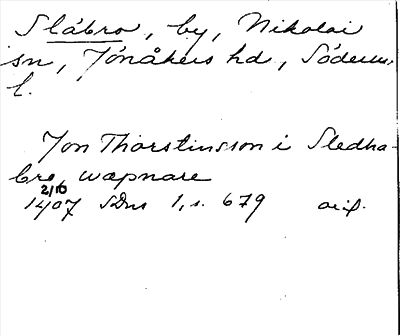 Slábro, by, Nikolai
sn, Jönåkers hd, Söderm.
l.
Jon Thorstinsson i Sledha-
bro, wæpnare
2/10
1407 SDns 1, s. 679 orig.